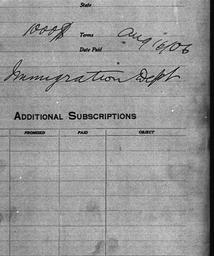 State
1000 Terms Aug 16/06
Date Paid
Immigration Dept
ADDITIONAL SUBSCRIPTIONS
PROMISED PAID OBJECT